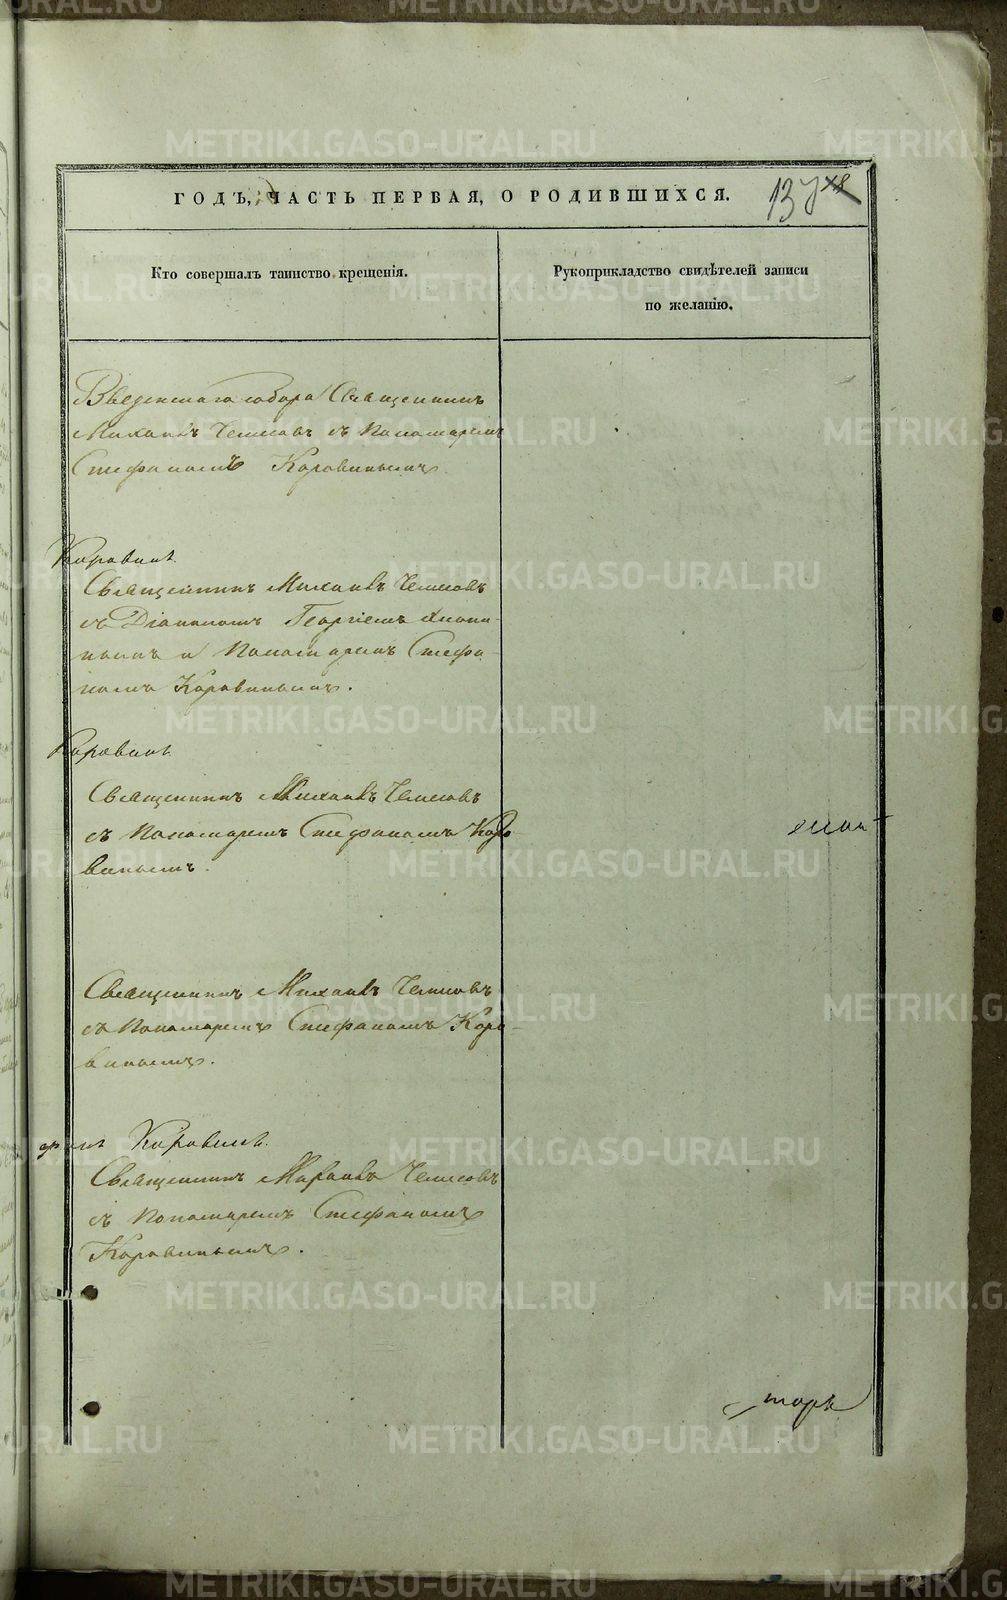 ГОДЪ, ЧАСТЬ ПЕРВАЯ, О РОДИВШИХСЯ.
137
Кто совершалъ таинство крещенія.
Рукоприкладство свидѣтелей записи
по желанію.
Введенскаго собора Священникъ
Михаилъ с Пономаремъ
Стефаномъ Коровинымъ.
Коровинъ
Священникъ Михаилъ
съ Діакономъ Георгіемъ
и Пономаремъ Стефа-
номъ Коровинымъ.
Коровинъ
Священникъ Михаилъ
съ Пономаремъ Стефаномъ Коро-
винымъ.
Священникъ Михаилъ
съ Пономаремъ Стефаномъ Коро-
винымъ.
Коровинъ.
Священникъ Михаилъ
съ Пономаремъ Стефаномъ
Коровинымъ.
METRIKI.GASO-URAL.RU